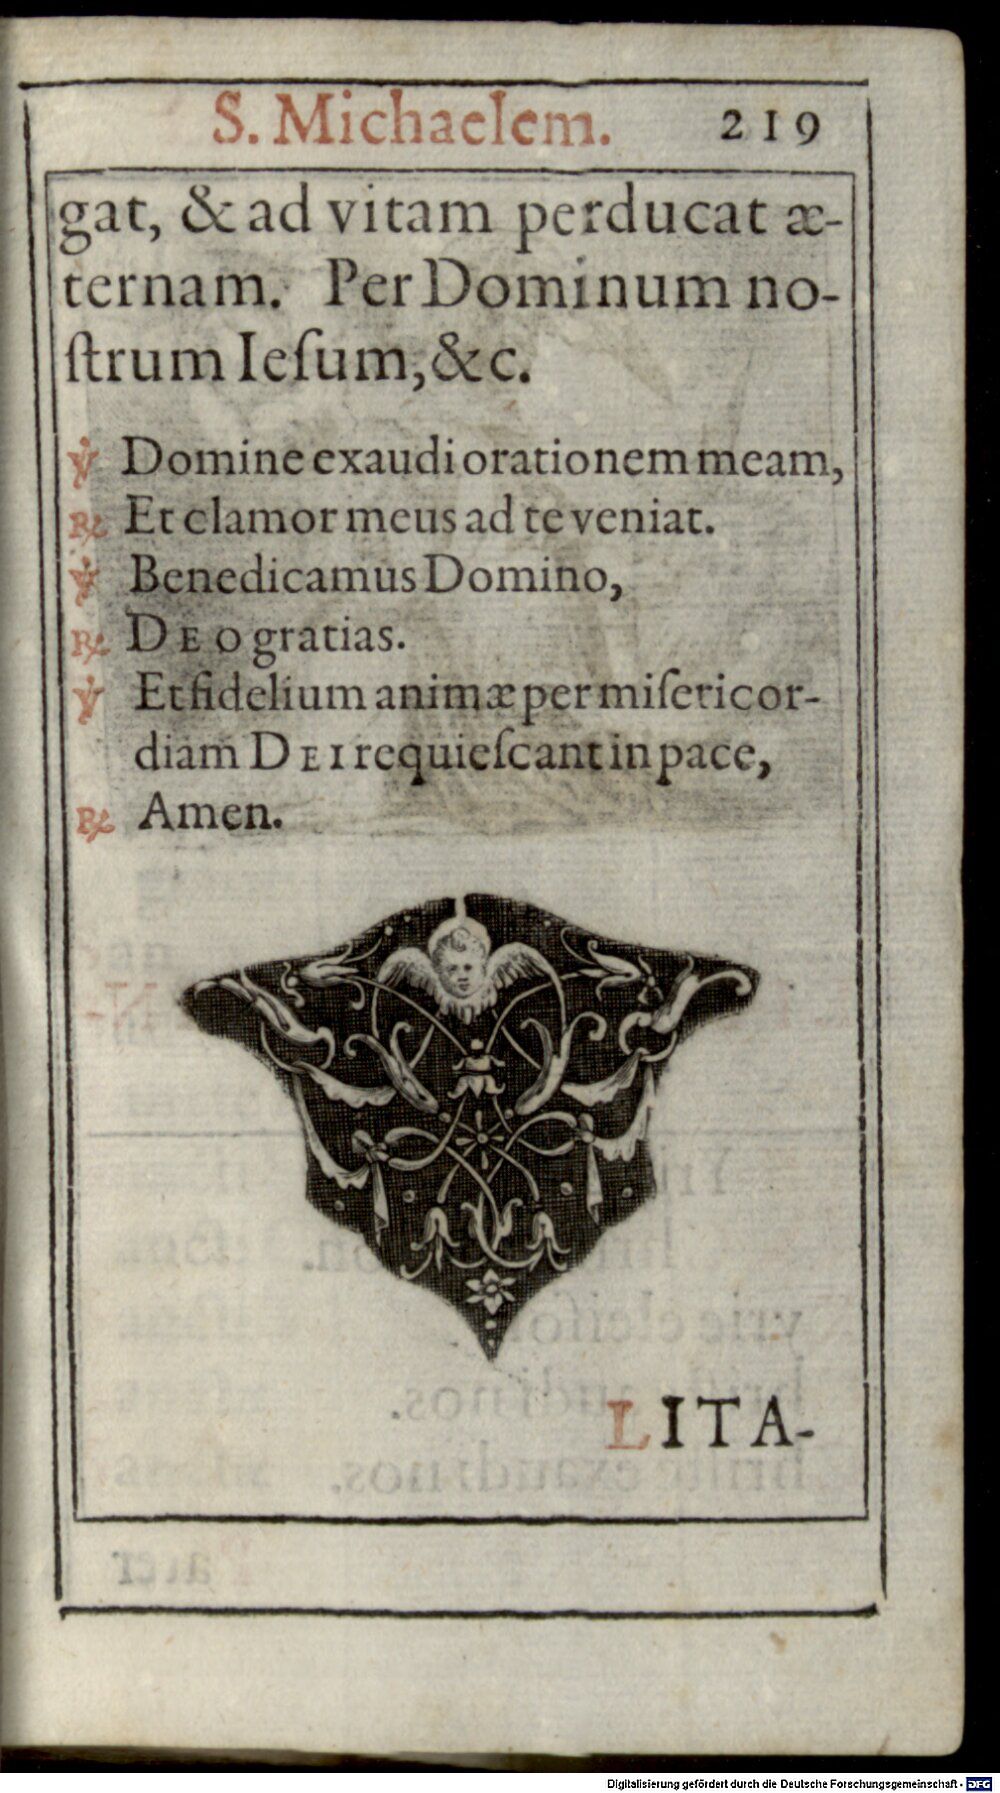 S. Michaelem. 219
gat, & ad vitam perducat æ-
ternam. Per Dominum no-
ſtrum Ieſum, &c.
℣ Domine exaudi orationem meam,
℟ Et clamor meus ad te veniat.
℣ Benedicamus Domino,
℟ DEO gratias.
℣ Et fidelium animæ per miſericor-
diam DEI requieſcant in pace,
℟ Amen.
LITA-
Digitalisierung gefördert durch die Deutsche Forschungsgemeinschaft - DFG